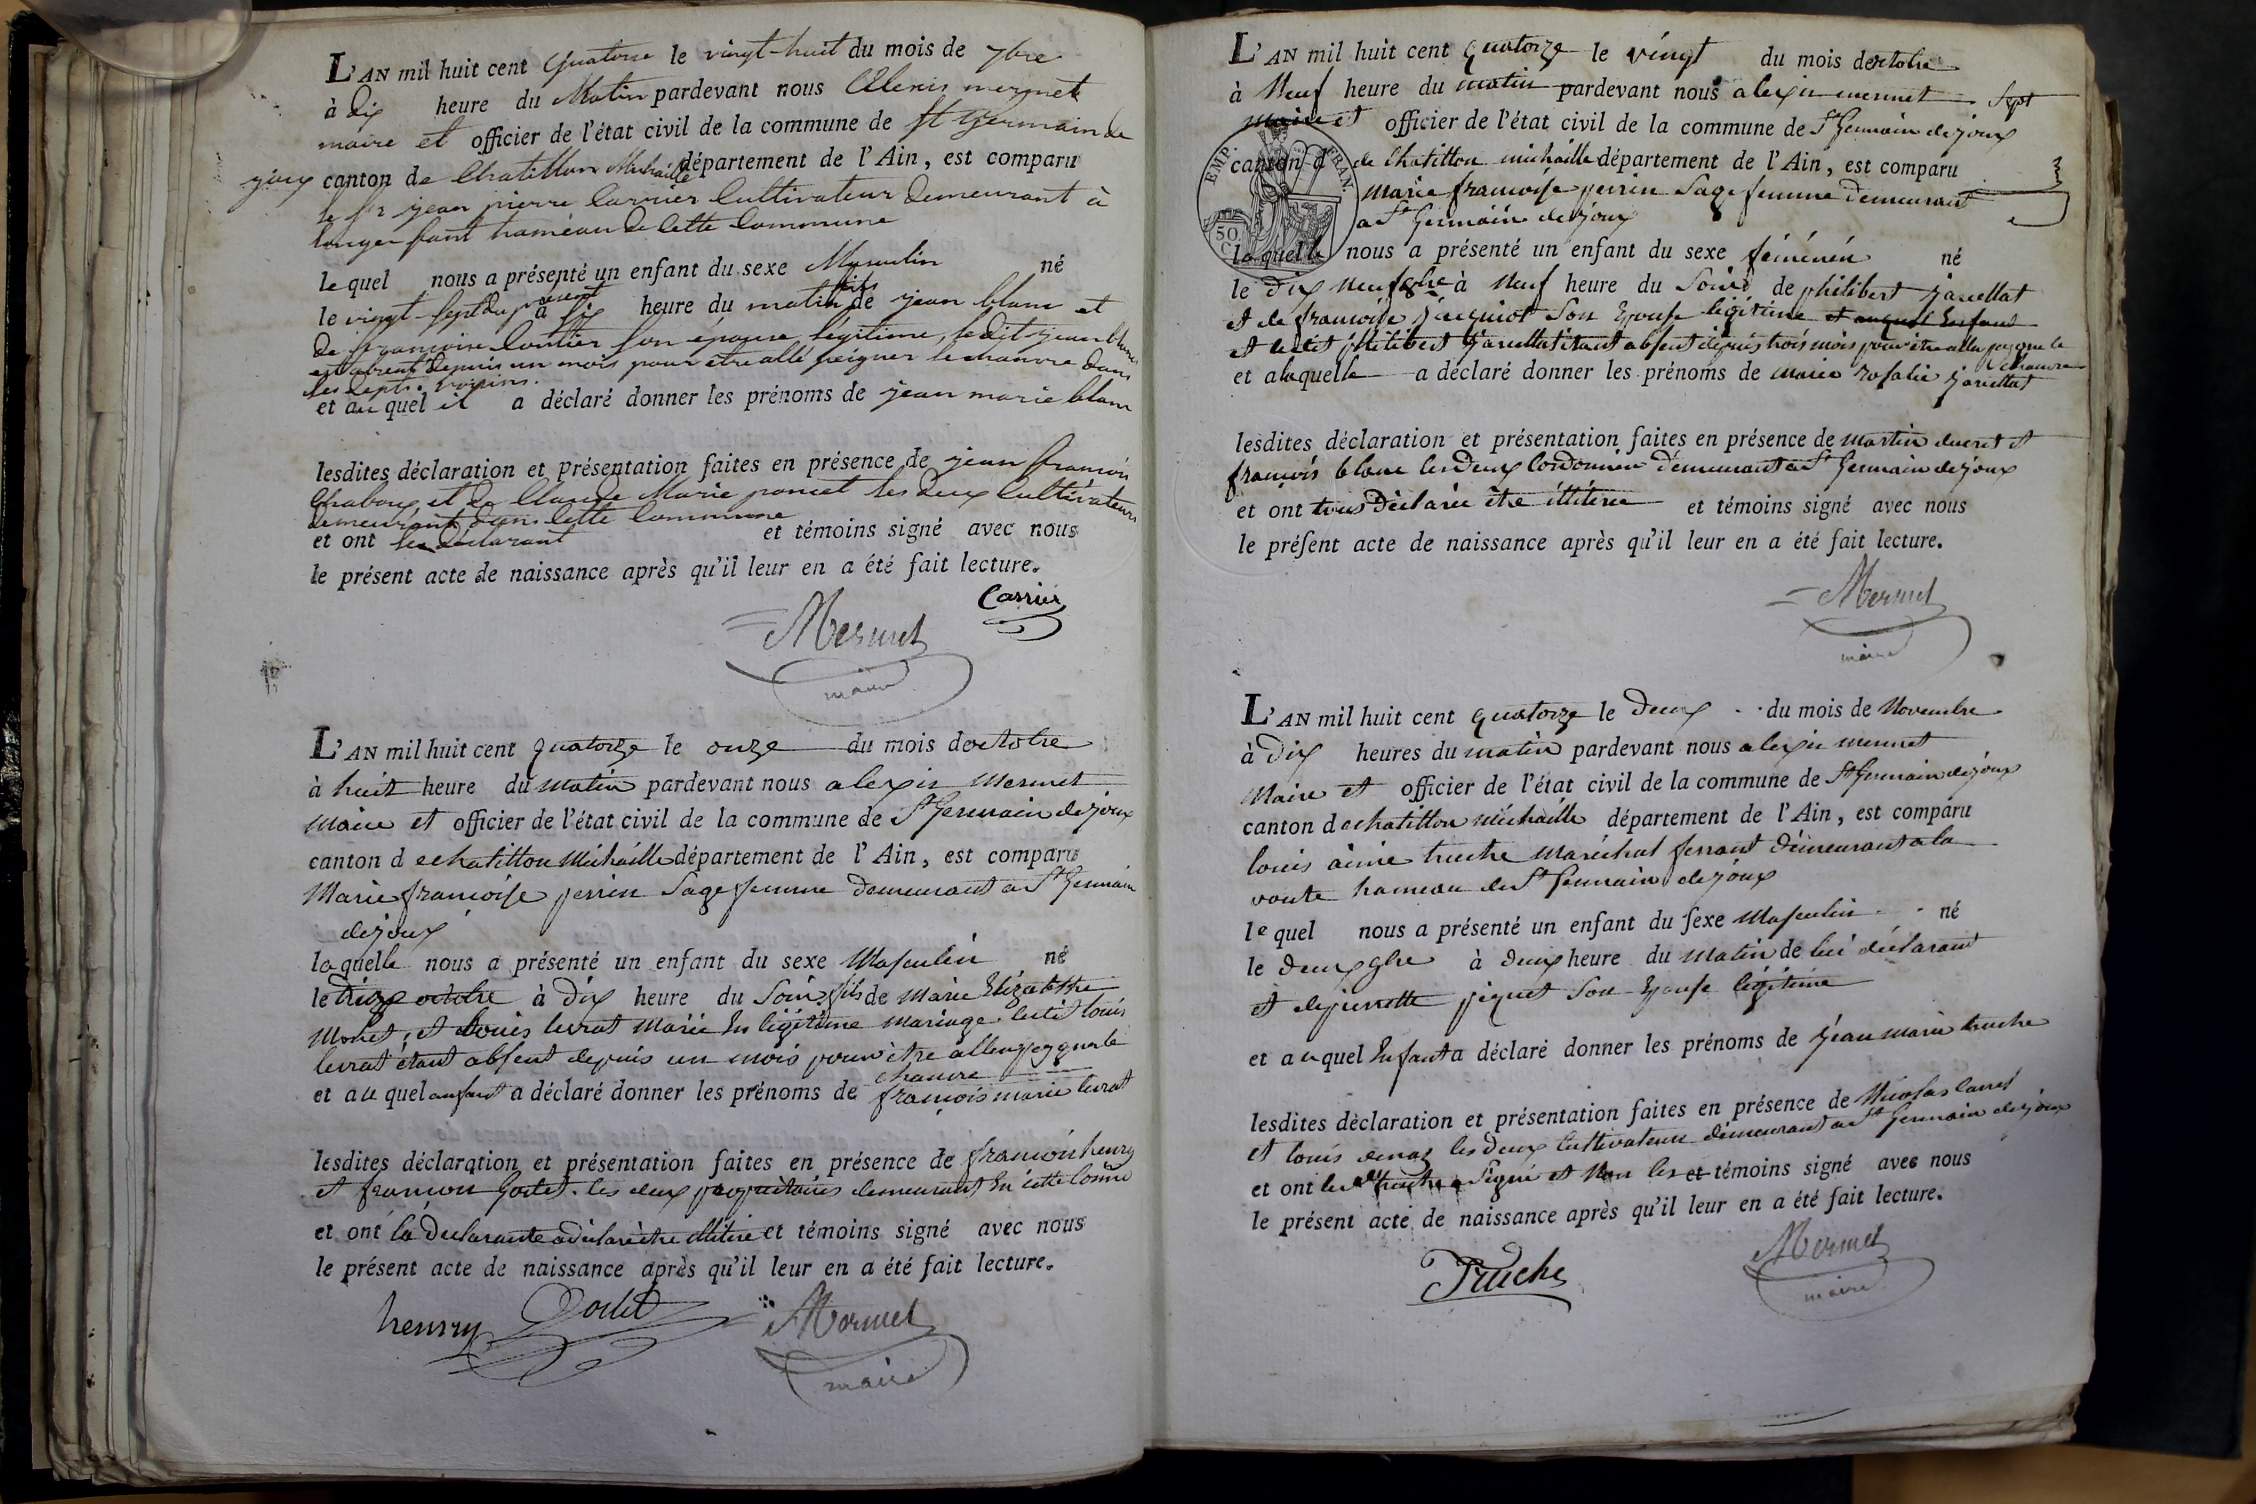 L'AN mil huit cent quatorze le vingt-huit du mois de 7bre
à dix heure du Matin pardevant nous Alexis mermet
maire et officier de l'état civil de la commune de St Germain de
joux canton de Chatillon Michaille département de l'Ain, est comparu
le sr jean pierre Carrier Cultivateur demeurant à
longe fant haméau de Cette Commune
le quel nous a présenté un enfant du sexe Masculin né
le vingt-sept du présent à six heure du matin fils de jean blanc et
de françoise son épouse légitime, le dit jean blanc
est absent depuis un mois pour être allé peigner le chanvre dans
les depts. voisins.
et au quel il a déclaré donner les prénoms de jean marie blanc
lesdites déclaration et présentation faites en présence de jean françois
Chaboux et de Claude Marie poncet les deux Cultivateurs
demeurant dans Cette Commune
et ont le déclarant et témoins signé avec nous
le présent acte de naissance après qu'il leur en a été fait lecture.
Carrier
Mermet
maire
L'AN mil huit cent quatorze le onze du mois doctobre
à huit heure du matin pardevant nous alexis Mermet
Maire et officier de l'état civil de la commune de St Germain de joux
canton d echatillon Michaille département de l'Ain, est comparu
Marie françoise perrin Sage femme demeurant a St Germain
de joux
laquelle nous a présenté un enfant du sexe Masculin né
le octobre à dix heure du Soir, fils de Marie Elizabeth
et Louis levrat Marié En légitime mariage. ledit Louis
levrat étant absent depuis un mois pour être aller peygner le
chanvre
et au quel enfant a déclaré donner les prénoms de françois marie levrat
lesdites déclaration et présentation faites en présence de françois henry
et françois Godet. les deux propriétaires demeurant En cette Comne
et ont la déclarante a déclaré être illitéré et témoins signé avec nous
le présent acte de naissance après qu'il leur en a été fait lecture.
henrry Godet Mermet
maire
L'AN mil huit cent quatorze le vingt du mois doctobre
à Neuf heure du matin pardevant nous alexis mermet Sept
maire et officier de l'état civil de la commune de St Germain de joux
canton d de Chatillon michaille département de l'Ain, est comparu
EMP. FRAN.
50 C
Marie françoise perrin Sage femme demeurant
a St Germain de joux
laquelle nous a présenté un enfant du sexe féminén né
le dix neuf 8bre à Neuf heure du Soire de philibert jarcellat
et de françoise jacquiot Son Epouse légitime et auquel Enfant
et ledit philibert jarcellat étant absent depuis trois mois pour être aller peygner le
chanvre
et a laquelle a déclaré donner les prénoms de marie rosalie jarcellat
lesdites déclaration et présentation faites en présence de martin ducret et
françois blanc les Deux Cordonnier démeurant a St Germain de joux
et ont tous Déclarée être illitérée et témoins signé avec nous
le présent acte de naissance après qu'il leur en a été fait lecture.
Mermet
maire
L'AN mil huit cent quatorze le Deux du mois de Novembre
à Dix heures du matin pardevant nous alexis mermet
Maire et officier de l'état civil de la commune de St Germain de joux
canton d echatillon michaille département de l'Ain, est comparu
louis aimé truche Maréchal ferrant démeurant a la
voute hameau de St Germain de joux
le quel nous a présenté un enfant du sexe Masculin né
le Deux 9bre à deux heure du Matin de lui déclarant
et de pierrette piquet Son Epouse légitime
et au quel Enfant a déclaré donner les prénoms de jean marie truche
lesdites déclaration et présentation faites en présence de Nicolas Carret
et louis les deux Cultivateurs démeurant a St Germain de joux
et ont le dt truche a Signé et Non les et témoins signé avec nous
le présent acte de naissance après qu'il leur en a été fait lecture.
Truche
Mermet
maire